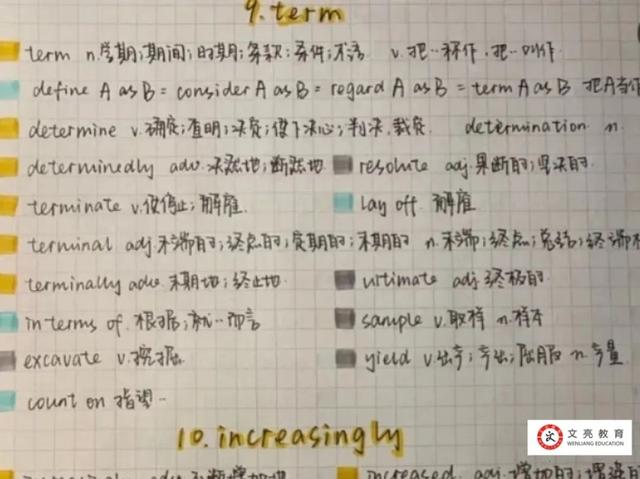 9. term
term n.学期;期间;时期;条款;条件;术语 v.把…称作,把…叫作
define A as B = consider A as B = regard A as B = term A as B 把A当作
determine v.确定;查明;决定;使下决心;判决,裁定 determination n.
determinedly adv.决然地;断然地 resolute adj.果断的;坚决的
terminate v.使停止;解雇 lay off 解雇
terminal adj.末端的;终点的;定期的;末期的 n.末端;终点;总站;终端
terminally adv.末期地;终止地 ultimate adj.终极的
in terms of 根据;就…而言 sample v.取样 n.样本
excavate v.挖掘 yield v.出产;产出;屈服 n.产量
count on 指望…
10. increasingly
文亮教育
WENLIANG EDUCATION
increased adj.增加的;